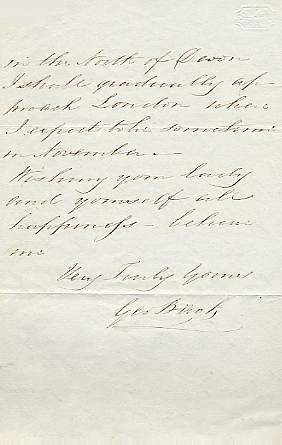 in the North of Devon
I shall gradually ap-
proach London where
I expect to be sometime
in November. -
Wishing your lady
and yourself all
happiness - believe
me
Very Truly Yours
Geo